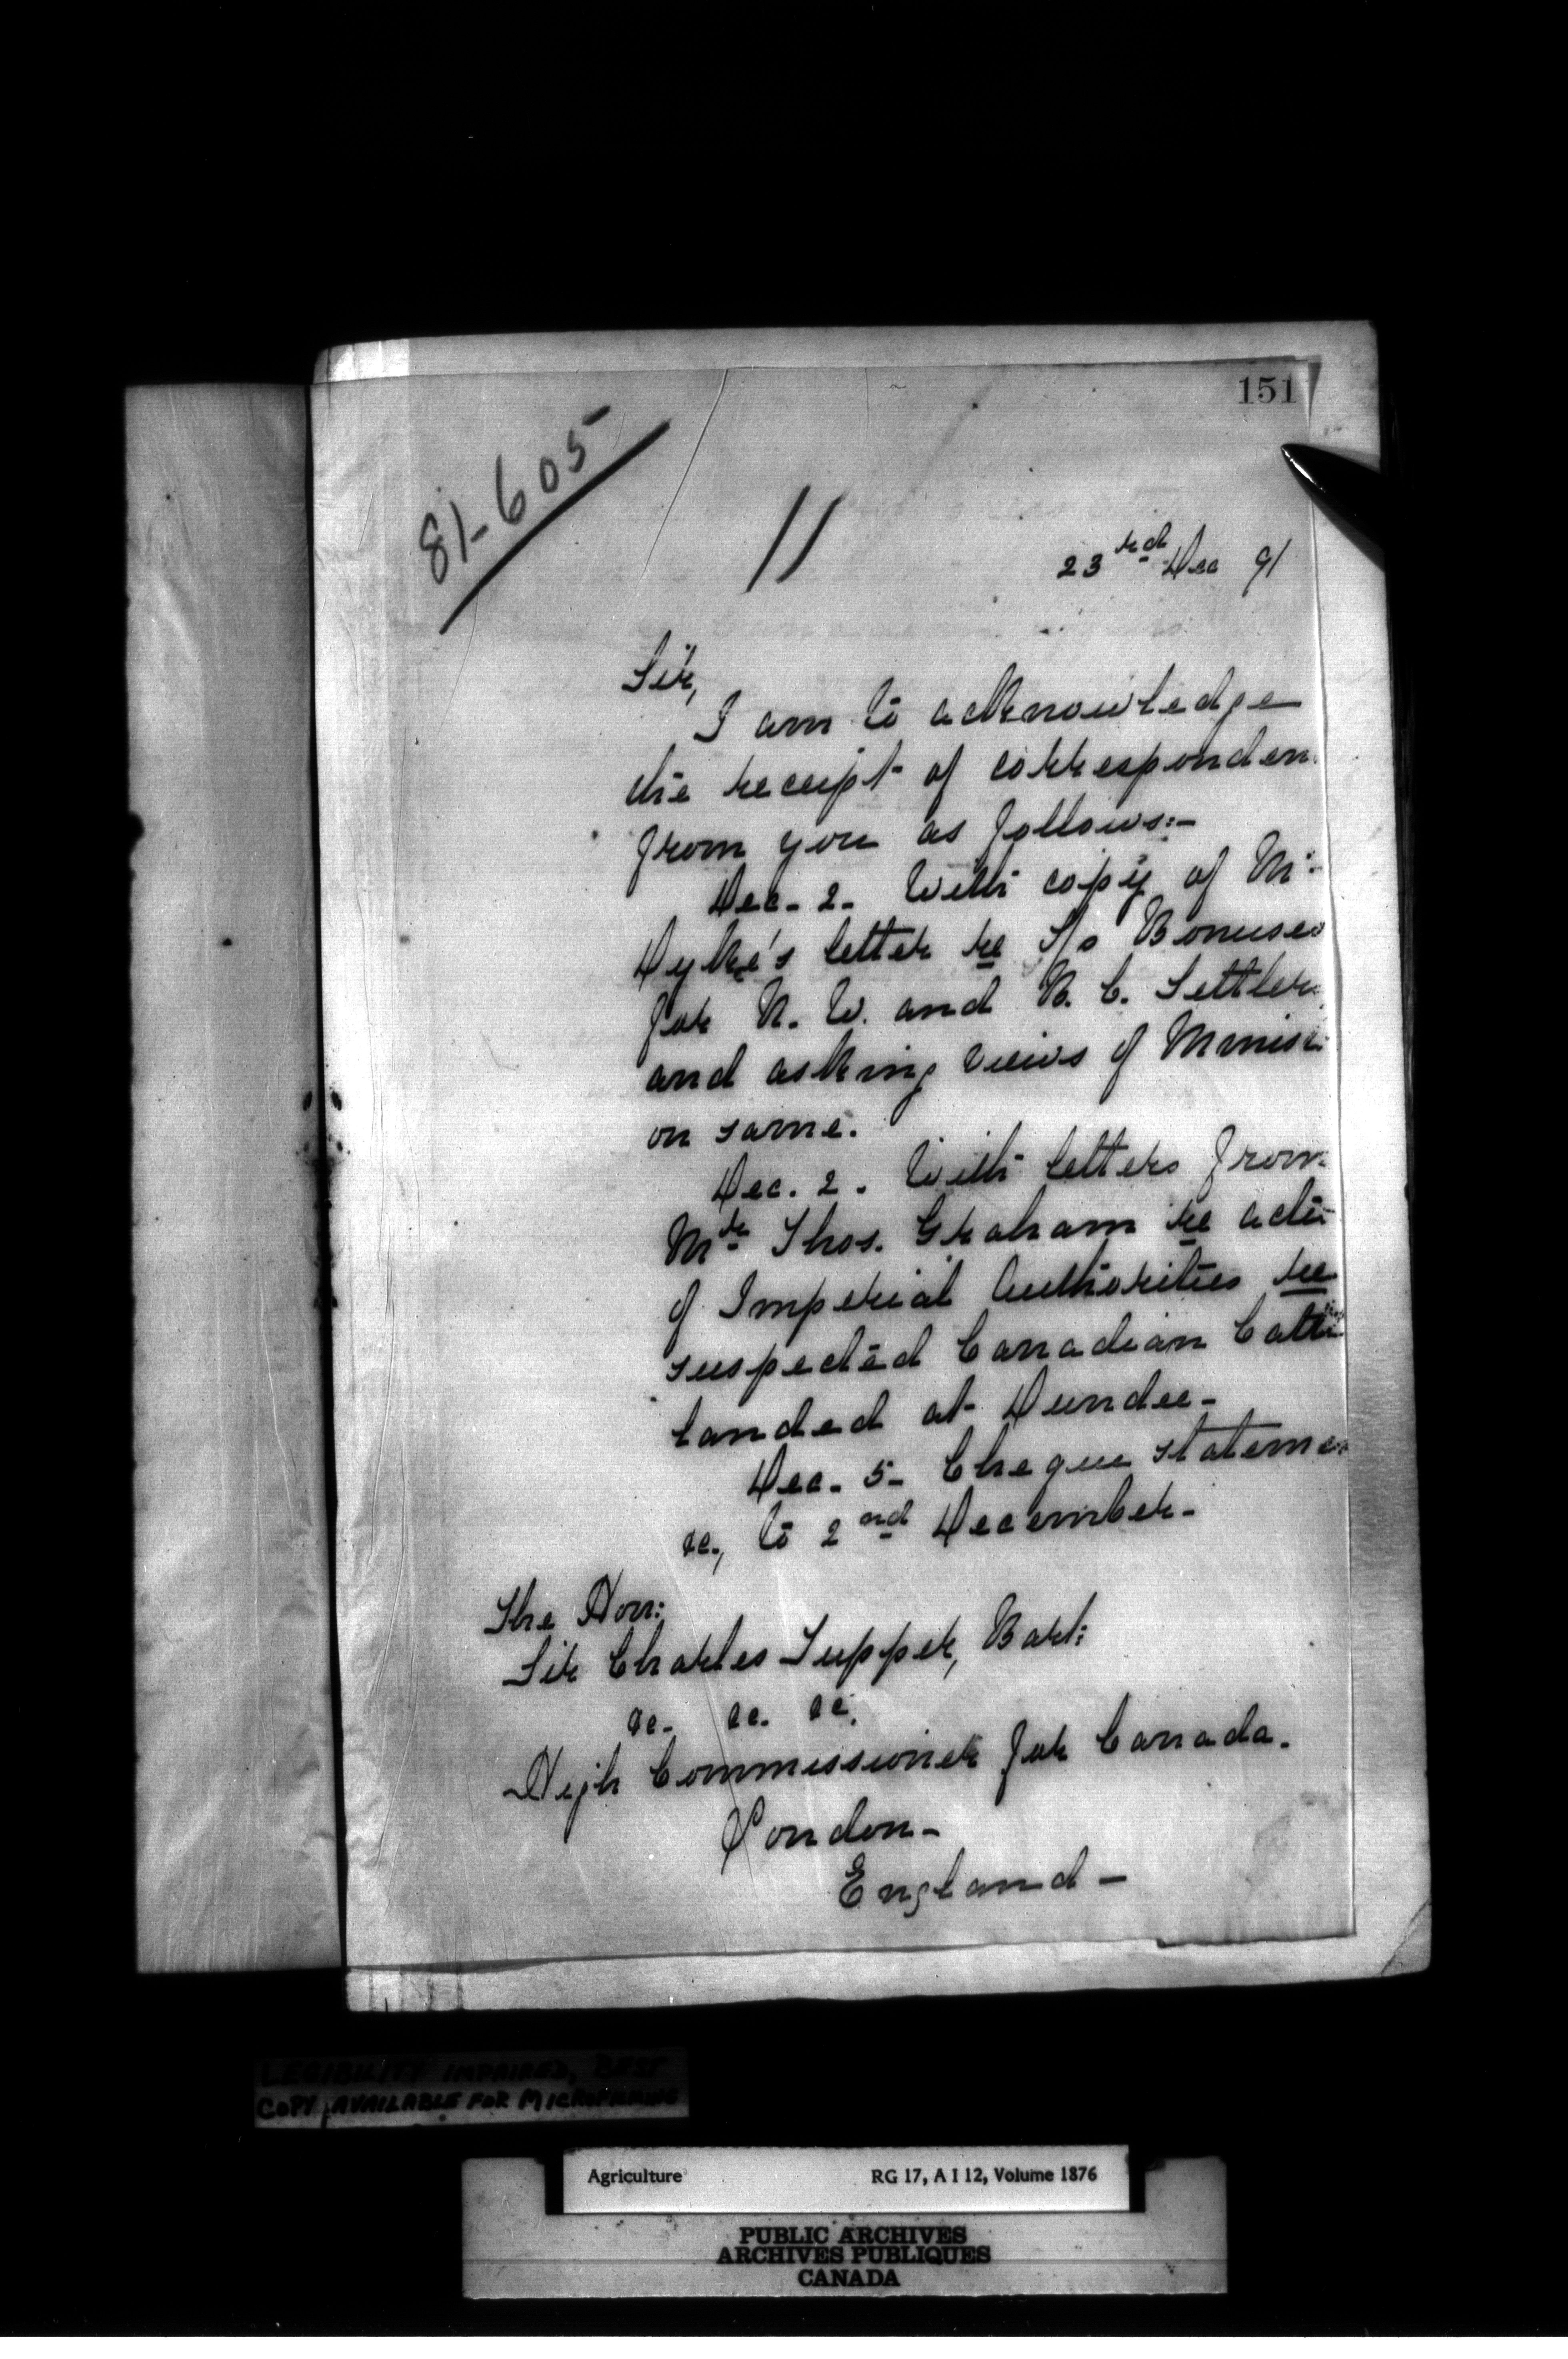 151
81-605
11
23rd Dec 91
Sir,
I am to acknowledge
the receipt of corresponden
from you as follows:-
Dec. 2. With copy of Mr.
Dyke's letter re S/s Bonuses
for N. W. and B. C. Settlers
and asking views of Minist
on same.
Dec. 2. With letters from
Mr. Thos. Graham re acti
of Imperial Authorities re
suspected Canadian Cattle
landed at Dundee-
Dec. 5- Cheque stateme
&c., to 2nd December-
The Hon:
Sir Charles Tupper, Bart:
&c. &c. &c.
High Commissioner for Canada.
London-
England-
LEGIBILITY IMPAIRED, BEST
COPY AVAILABLE FOR MICROFILMING
Agriculture RG 17, A I 12, Volume 1876
PUBLIC ARCHIVES
ARCHIVES PUBLIQUES
CANADA